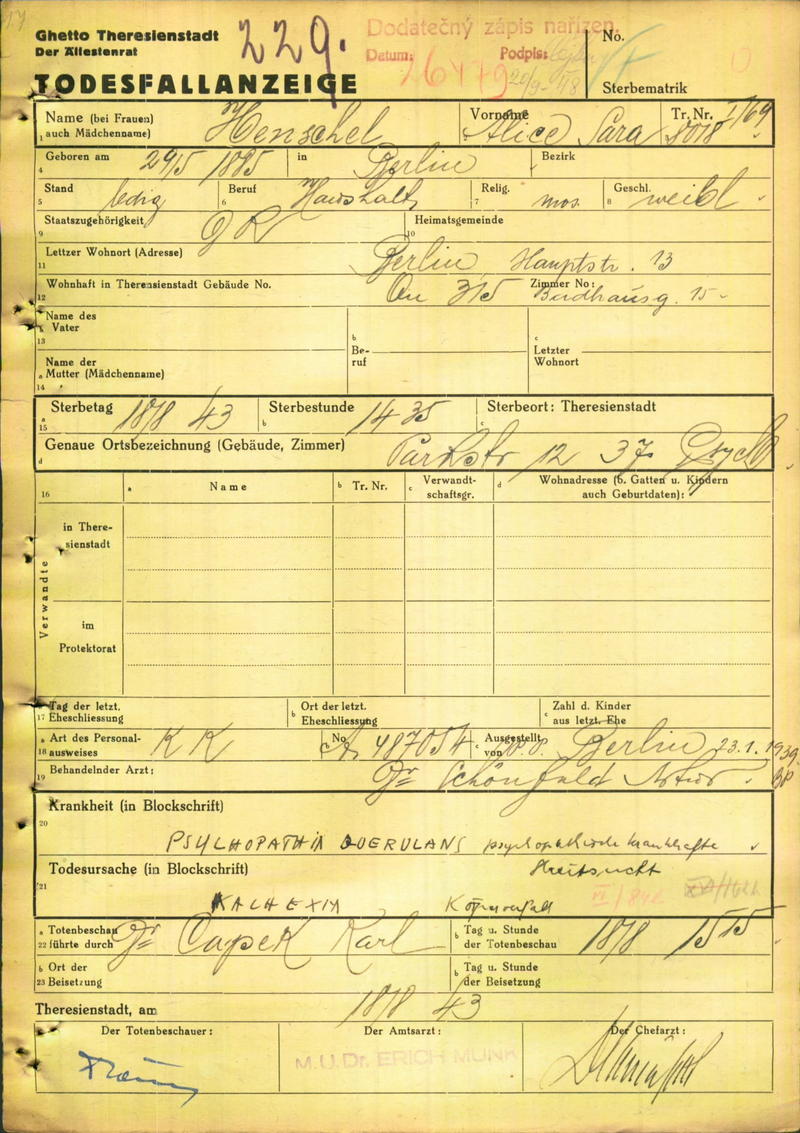 Ghetto Theresienstadt
Der Ältestenrat
229.
Dodatečný zápis nařízen.
Datum:
Podpis:
No.
Sterbematrik
TODESFALLANZEIGE
Name (bei Frauen) auch Mädchenname) Henschel Vorname Alice Sara Tr. Nr. I/69 8018
1
4 Geboren am 29/5 1885 in Berlin Bezirk
5 Stand ledig 6 Beruf Haushalt 7 Relig. mos. 8 Geschl. weibl
9 Staatszugehörigkeit DR 10 Heimatsgemeinde
11 Letzter Wohnort (Adresse) Berlin Hauptstr. 13
12 Wohnhaft in Theresienstadt Gebäude No. 315 Zimmer No: 15
13 Name des Vater b Beruf c Letzter Wohnort
14 a Name der Mutter (Mädchenname)
a 15 Sterbetag 18/8 43 b Sterbestunde 14 35 c Sterbeort: Theresienstadt
d Genaue Ortsbezeichnung (Gebäude, Zimmer) Parkstr 12 37
16 a Name b Tr. Nr. c Verwandtschaftsgr. d Wohnadresse (b. Gatten u. Kindern auch Geburtdaten):
Verwandte
in Theresienstadt
im Protektorat
17 Tag der letzt. Eheschliessung b Ort der letzt. Eheschliessung c Zahl d. Kinder aus letzt. Ehe
a 18 Art des Personalausweises KK No. A 487054 c Ausgestellt von P.P. Berlin 23.1.1939
19 Behandelnder Arzt: Dr Schönfeld Artur
Krankheit (in Blockschrift)
20
PSYCHOPATHIA QUERULANS psychopathische krankhafte
Streitsucht
Todesursache (in Blockschrift)
21
KACHEXIA Körperverfall
a 22 Totenbeschau führte durch Dr Capek Karl b Tag u. Stunde der Totenbeschau 18/8 15 15
b 23 Ort der Beisetzung b Tag u. Stunde der Beisetzung
Theresienstadt, am 18/8 43
Der Totenbeschauer: Der Amtsarzt: Der Chefarzt:
M.U.Dr. ERICH MUNK